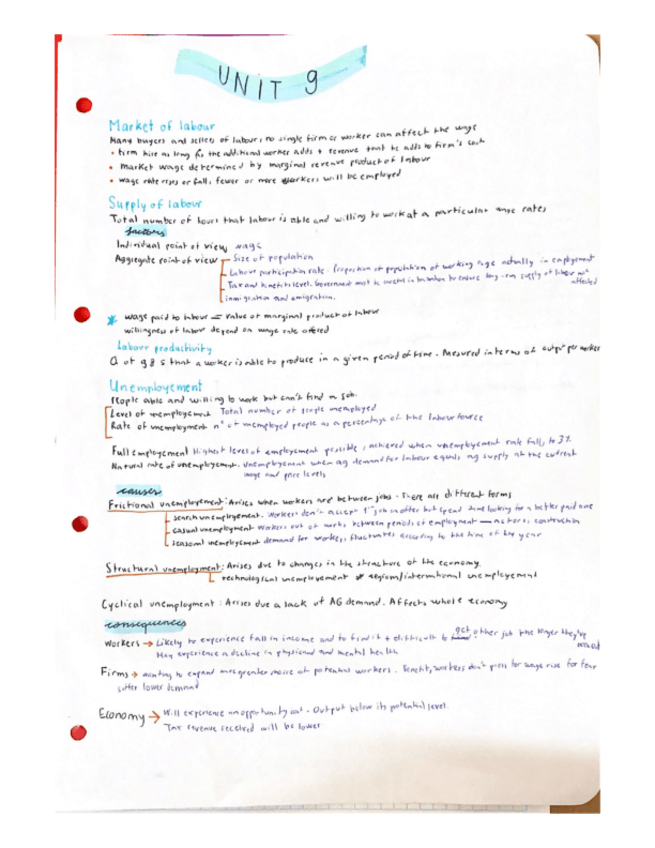 UNIT 9
Market of labour
Many buyers and sellers of labour, no single firm or worker can affect the wage
• firm hire as long as the additional worker adds + revenue that he adds to firm's cost
• market wage determined by marginal revenue product of labour
• wage rate rises or falls, fewer or more workers will be employed
Supply of labour
Total number of hours that labour is able and willing to work at a particular wage rates
factors
Individual point of view wage
Aggregate point of view Size of population
Labour participation rate. Proportion of population of working age actually in employment
Tax and benefits level. Government must be careful in taxation to ensure long-run supply of labour not affected
immigration and emigration.
wage paid to labour = value of marginal product of labour
willingness of labour depend on wage rate offered
Labour productivity
Q of g & s that a worker is able to produce in a given period of time. Measured in terms of output per worker
Unemployement
People able and willing to work but can't find a job.
Level of unemployement Total number of people unemployed
Rate of unemployment nº of unemployed people as a percentage of the labour force
Full employement Highest level of employement possible, achieved when unemployement rate falls to 3%
Natural rate of unemployement. Unemployement when ag demand for labour equals ag supply at the current
wage and price levels
causes
Frictional unemployement: Arises when workers are between jobs - There are different forms
search unemployement. Workers don't accept 1st job on offer but spend time looking for a better paid one
casual unemployement Workers out of work between periods of employment — actors, construction
seasonal unemployement demand for workers fluctuates according to the time of the year
Structural unemployment: Arises due to changes in the structure of the economy
technological unemployement regional/international unemployement
Cyclical unemployment: Arises due a lack of AG demand. Affects whole economy
consequences
Workers → Likely to experience fall in income and to find it + difficult to get other job the longer they've
May experience a decline in physical and mental health
Firms → wanting to expand greater choice of potential workers. Benefit, workers don't press for wage rise for fear
suffer lower demand
Economy → Will experience an opportunity cost. Output below its potential level.
Tax revenue received will be lower